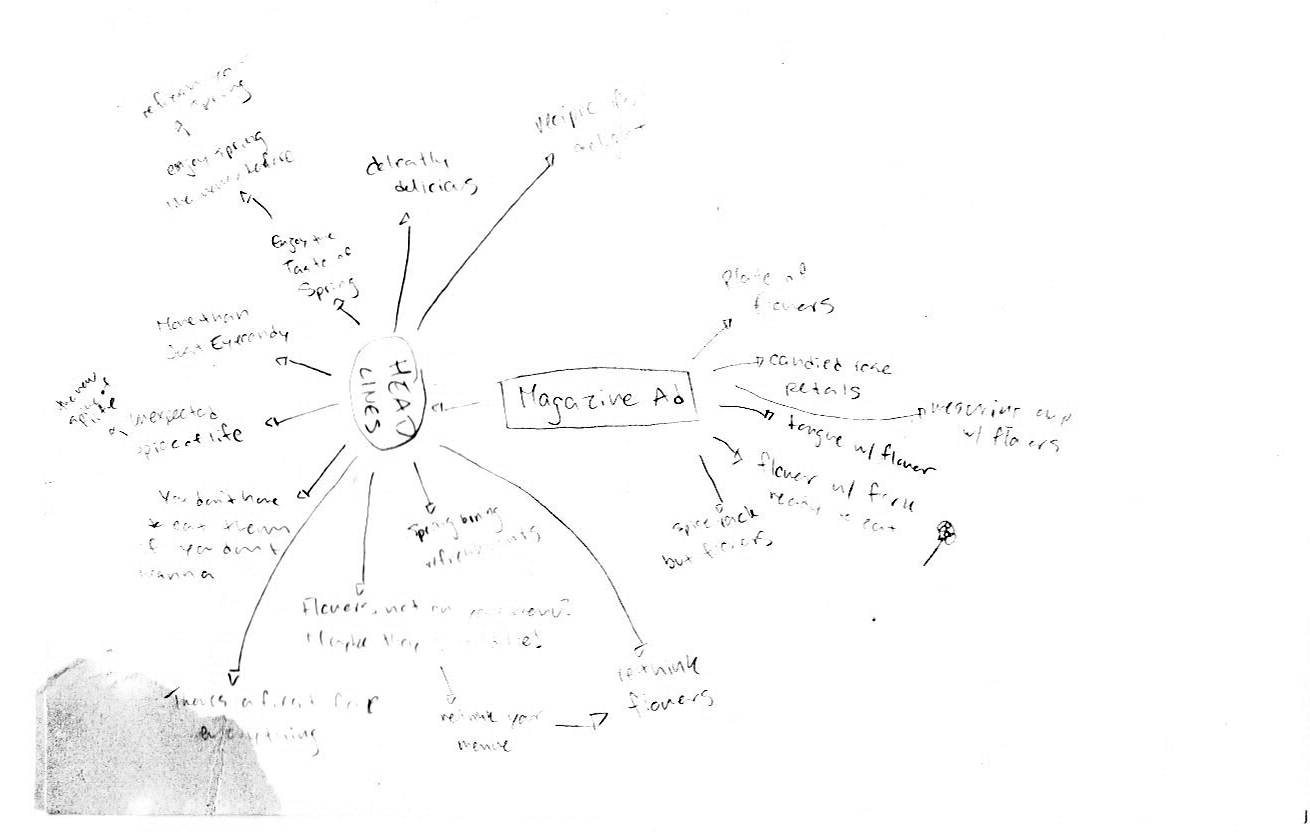 Spring
enjoy spring
like never before
delicatly
delicius
Recipie for
Enjoy the
Taste of
Spring
More than
Just Eyecandy
HEAD
LINES
Magazine Ad
Plate of
flowers
candied rose
petals
measuring cup
w/ flowers
tongue w/ flower
flower w/ fork
ready to eat
spice rack
but flowers
unexpected
spice of life
You don't have
to eat them
if you don't
wanna
Spring
refreshments
Flowers not on your menu?
Maybe they
There's a first for
everything
rethink your
menue
rethink
flowers